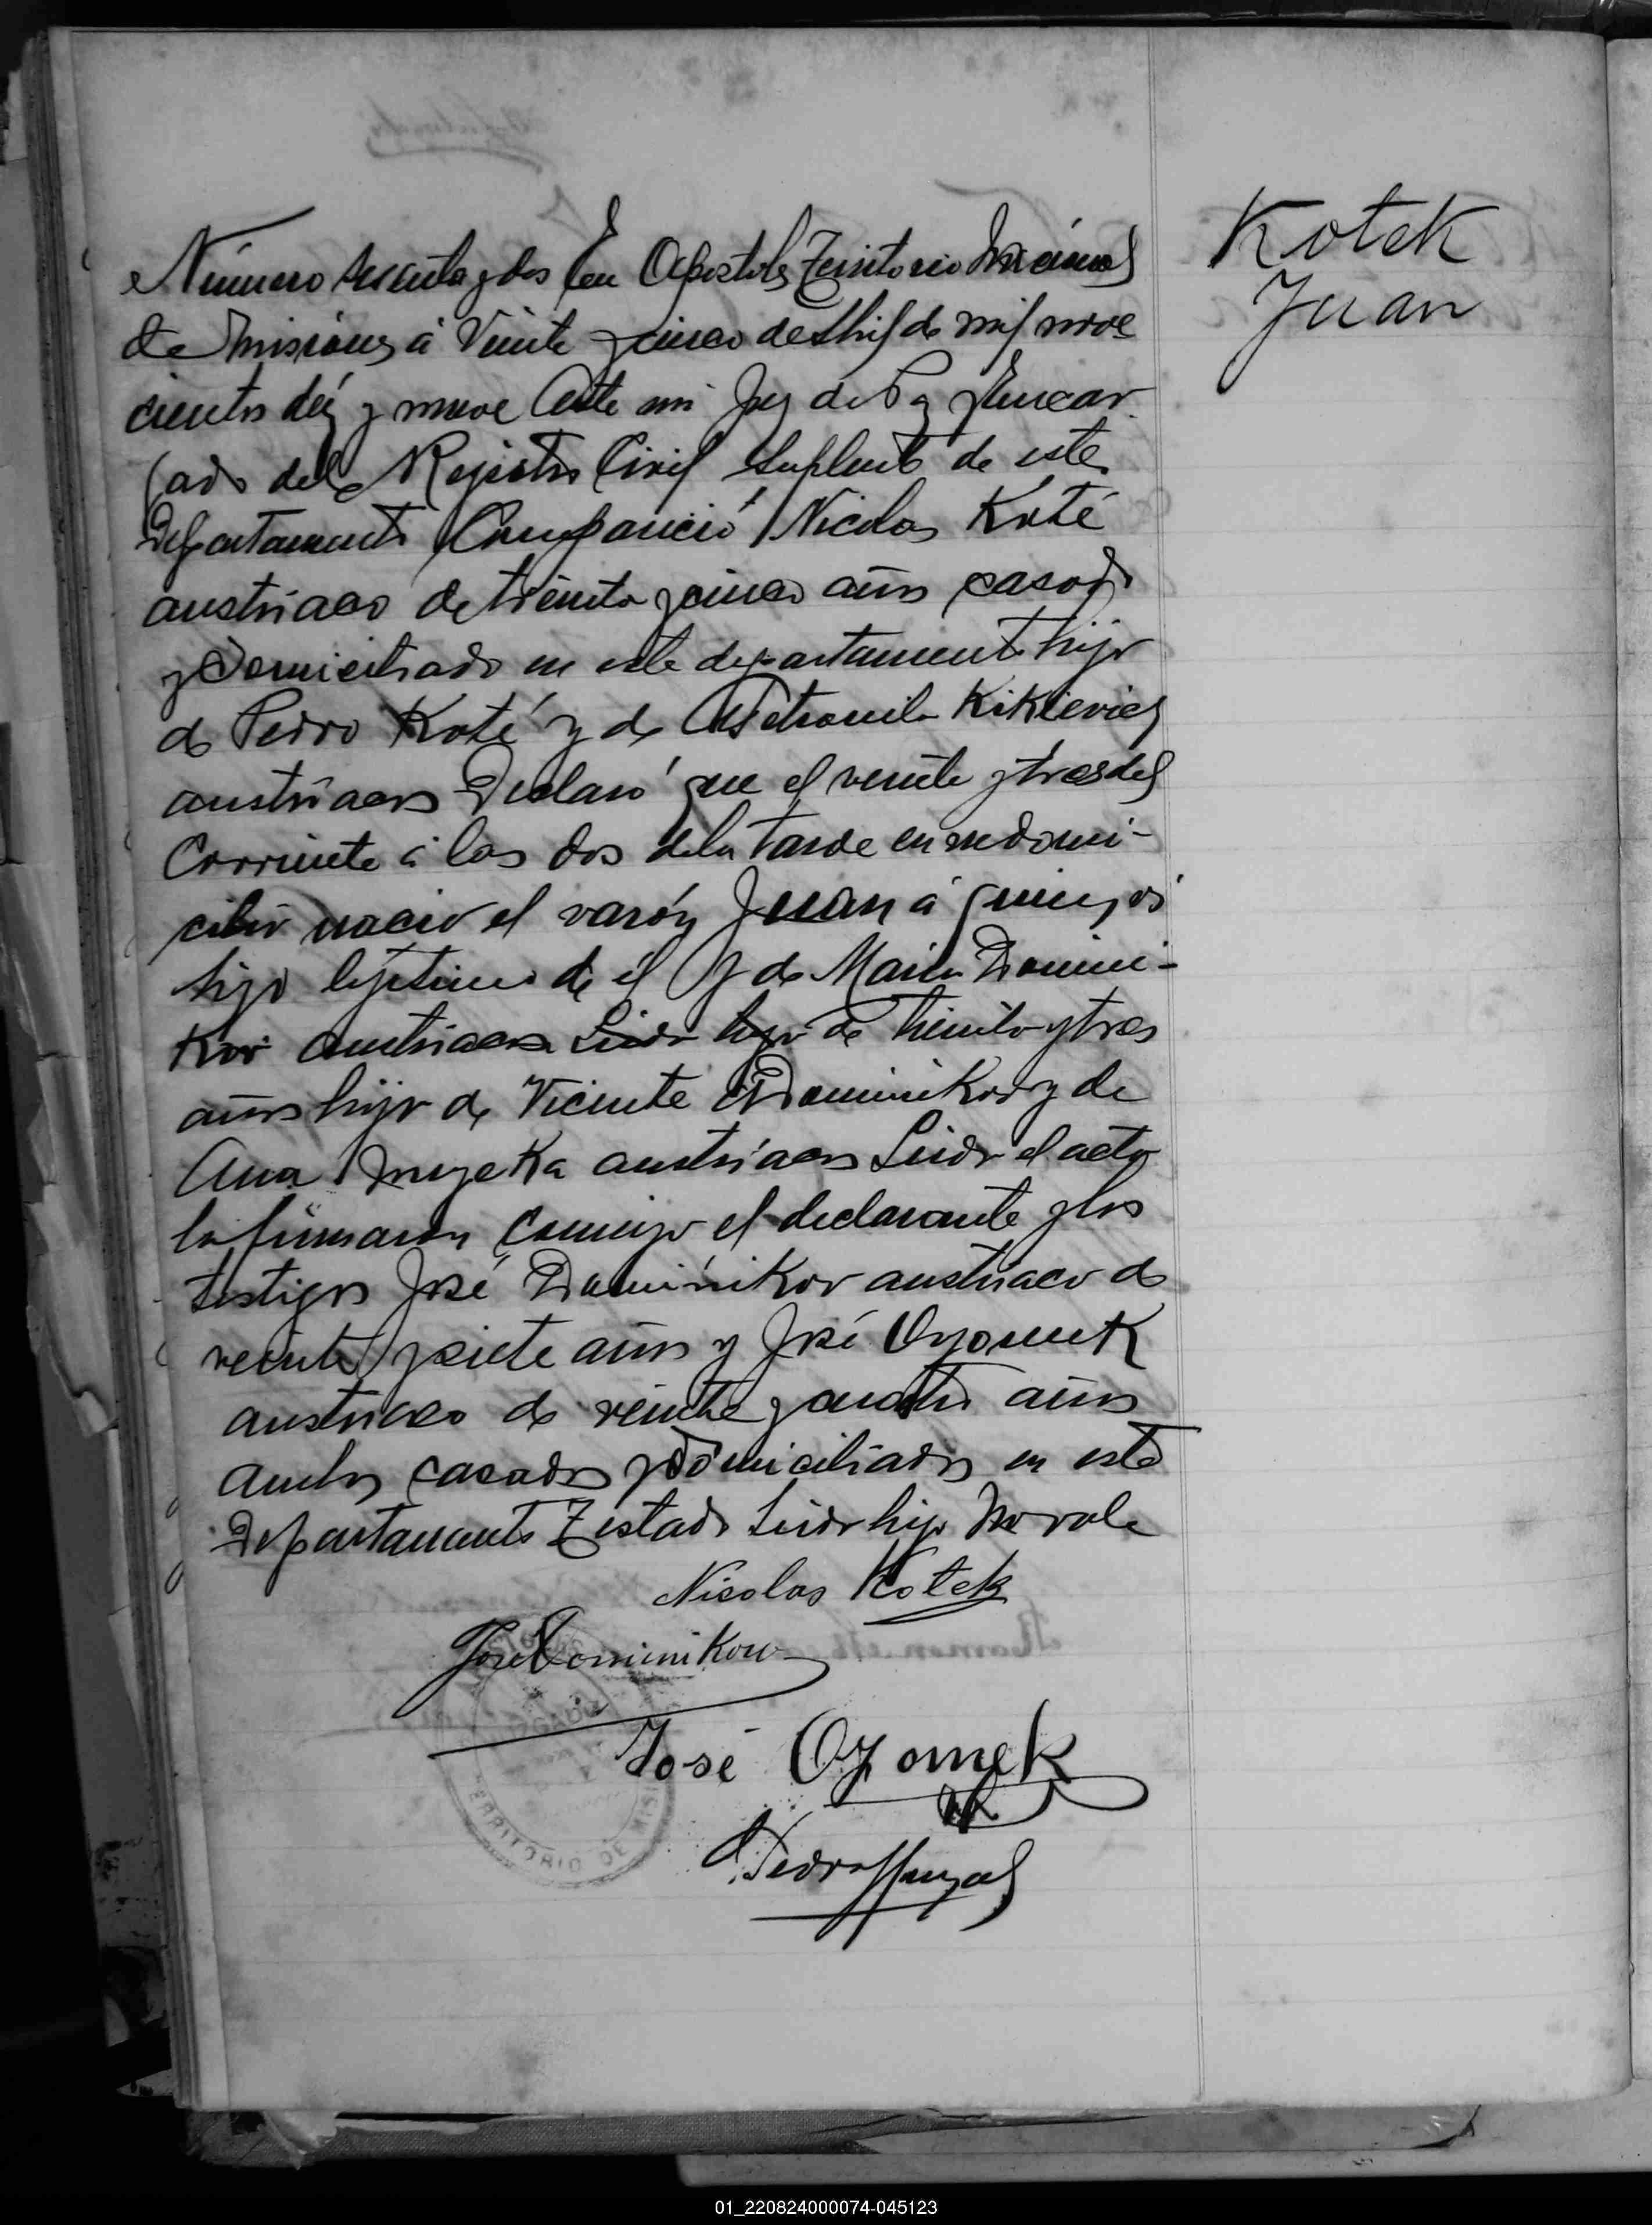 Kotek
Juan
Número sesenta y dos En Apostoles Territorio Nacional
de Misiones á Veinte y cinco de Abril de mil nove
cientos diez y nueve Ante mi Juez de Paz y Encar
gado del Registro Civil Suplente de este
Departamento Compareció Nicolas Koté
austriaco de treinta y cinco años casado
y Domiciliado en este departamento hijo
de Pedro Koté y de Petronila Kikievicz
austriacos Declaró que el veinte y tres del
Corriente á las dos de la tarde en su domi-
cilio nació el varón Juan á quien vi
hijo lejitimo de él y de Maria Domini-
kov austriaca Leido hijo de treinta y tres
años hija de Vicente Dominikov y de
Ana austriacos Leido el acta
la firmaron conmigo el declarante y los
testigos José Dominikov austriaco de
veinte y siete años y José Ozomek
austriaco de veinte y cuatro años
ambos casados y domiciliados en este
Departamento Testado Leido hijo No vale
Nicolas Kotek
José Dominikow
José Ozomek
Pedro
TERRITORIO DE MIS
01_220824000074-045123